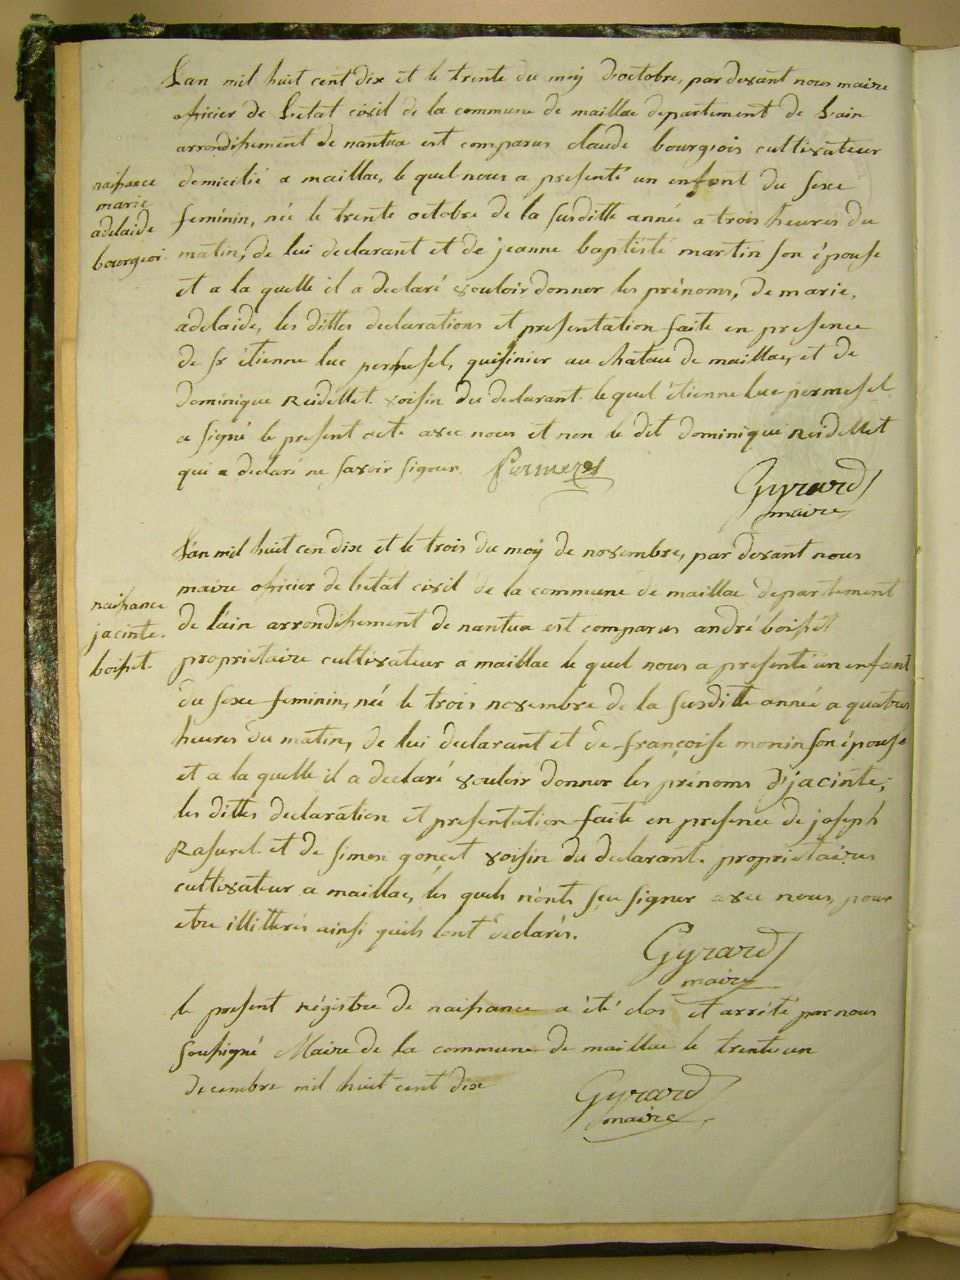 L'an mil huit cent dix et le trente du moy d'octobre, par devant nous maire
officier de l'etat civil de la commune de maillac departement de l'ain
arrondissement de nantua est comparus claude bourgeois cultivateur
naissance
marie
adelaide
bourgeoi
domicilié a maillac, le quel nous a presenté un enfant du sexe
feminin, née le trente octobre de la susditte année a trois heures du
matin, de lui declarant et de jeanne baptiste martin son épouse
et a la quelle il a declaré vouloir donner les prénoms, de marie,
adelaide, les dittes declarations et presentation faite en presence
de sr étienne luc permesel, quisinier au chateau de maillac, et de
dominique Reidellet voisin du declarant le quel étienne luc permesel
a signé le present acte avec nous et non le dit dominique Reidellet
qui a declaré ne savoir signer. Permezel
Gyrard
maire
L'an mil huit cen dix et le trois du moy de novembre, par devant nous
maire officier de l'etat civil de la commune de maillac departement
naissance
jacinte.
boisset.
de l'ain arrondissement de nantua est comparus andré boisset
propriétaire cultivateur a maillac le quel nous a presenté un enfant
du sexe feminin, née le trois novembre de la susditte année a quatres
heures du matin, de lui declarant et de françoise monin son épouse
et a la quelle il a declaré vouloir donner les prénoms d'jacinte,
les dittes declaration et presentation faite en presence de joseph
Rasurel et de simon gonet voisin du declarant. propriétaires
cultivateur a maillac, les quels n'onts seu signer avec nous, pour
etre illitterés ainsi quils l'ont declarés.
Gyrard
maire
le present régistre de naissance a été clos et arrété par nous
soussigné Maire de la commune de maillac le trente un
decembre mil huit cent dix
Gyrard
maire